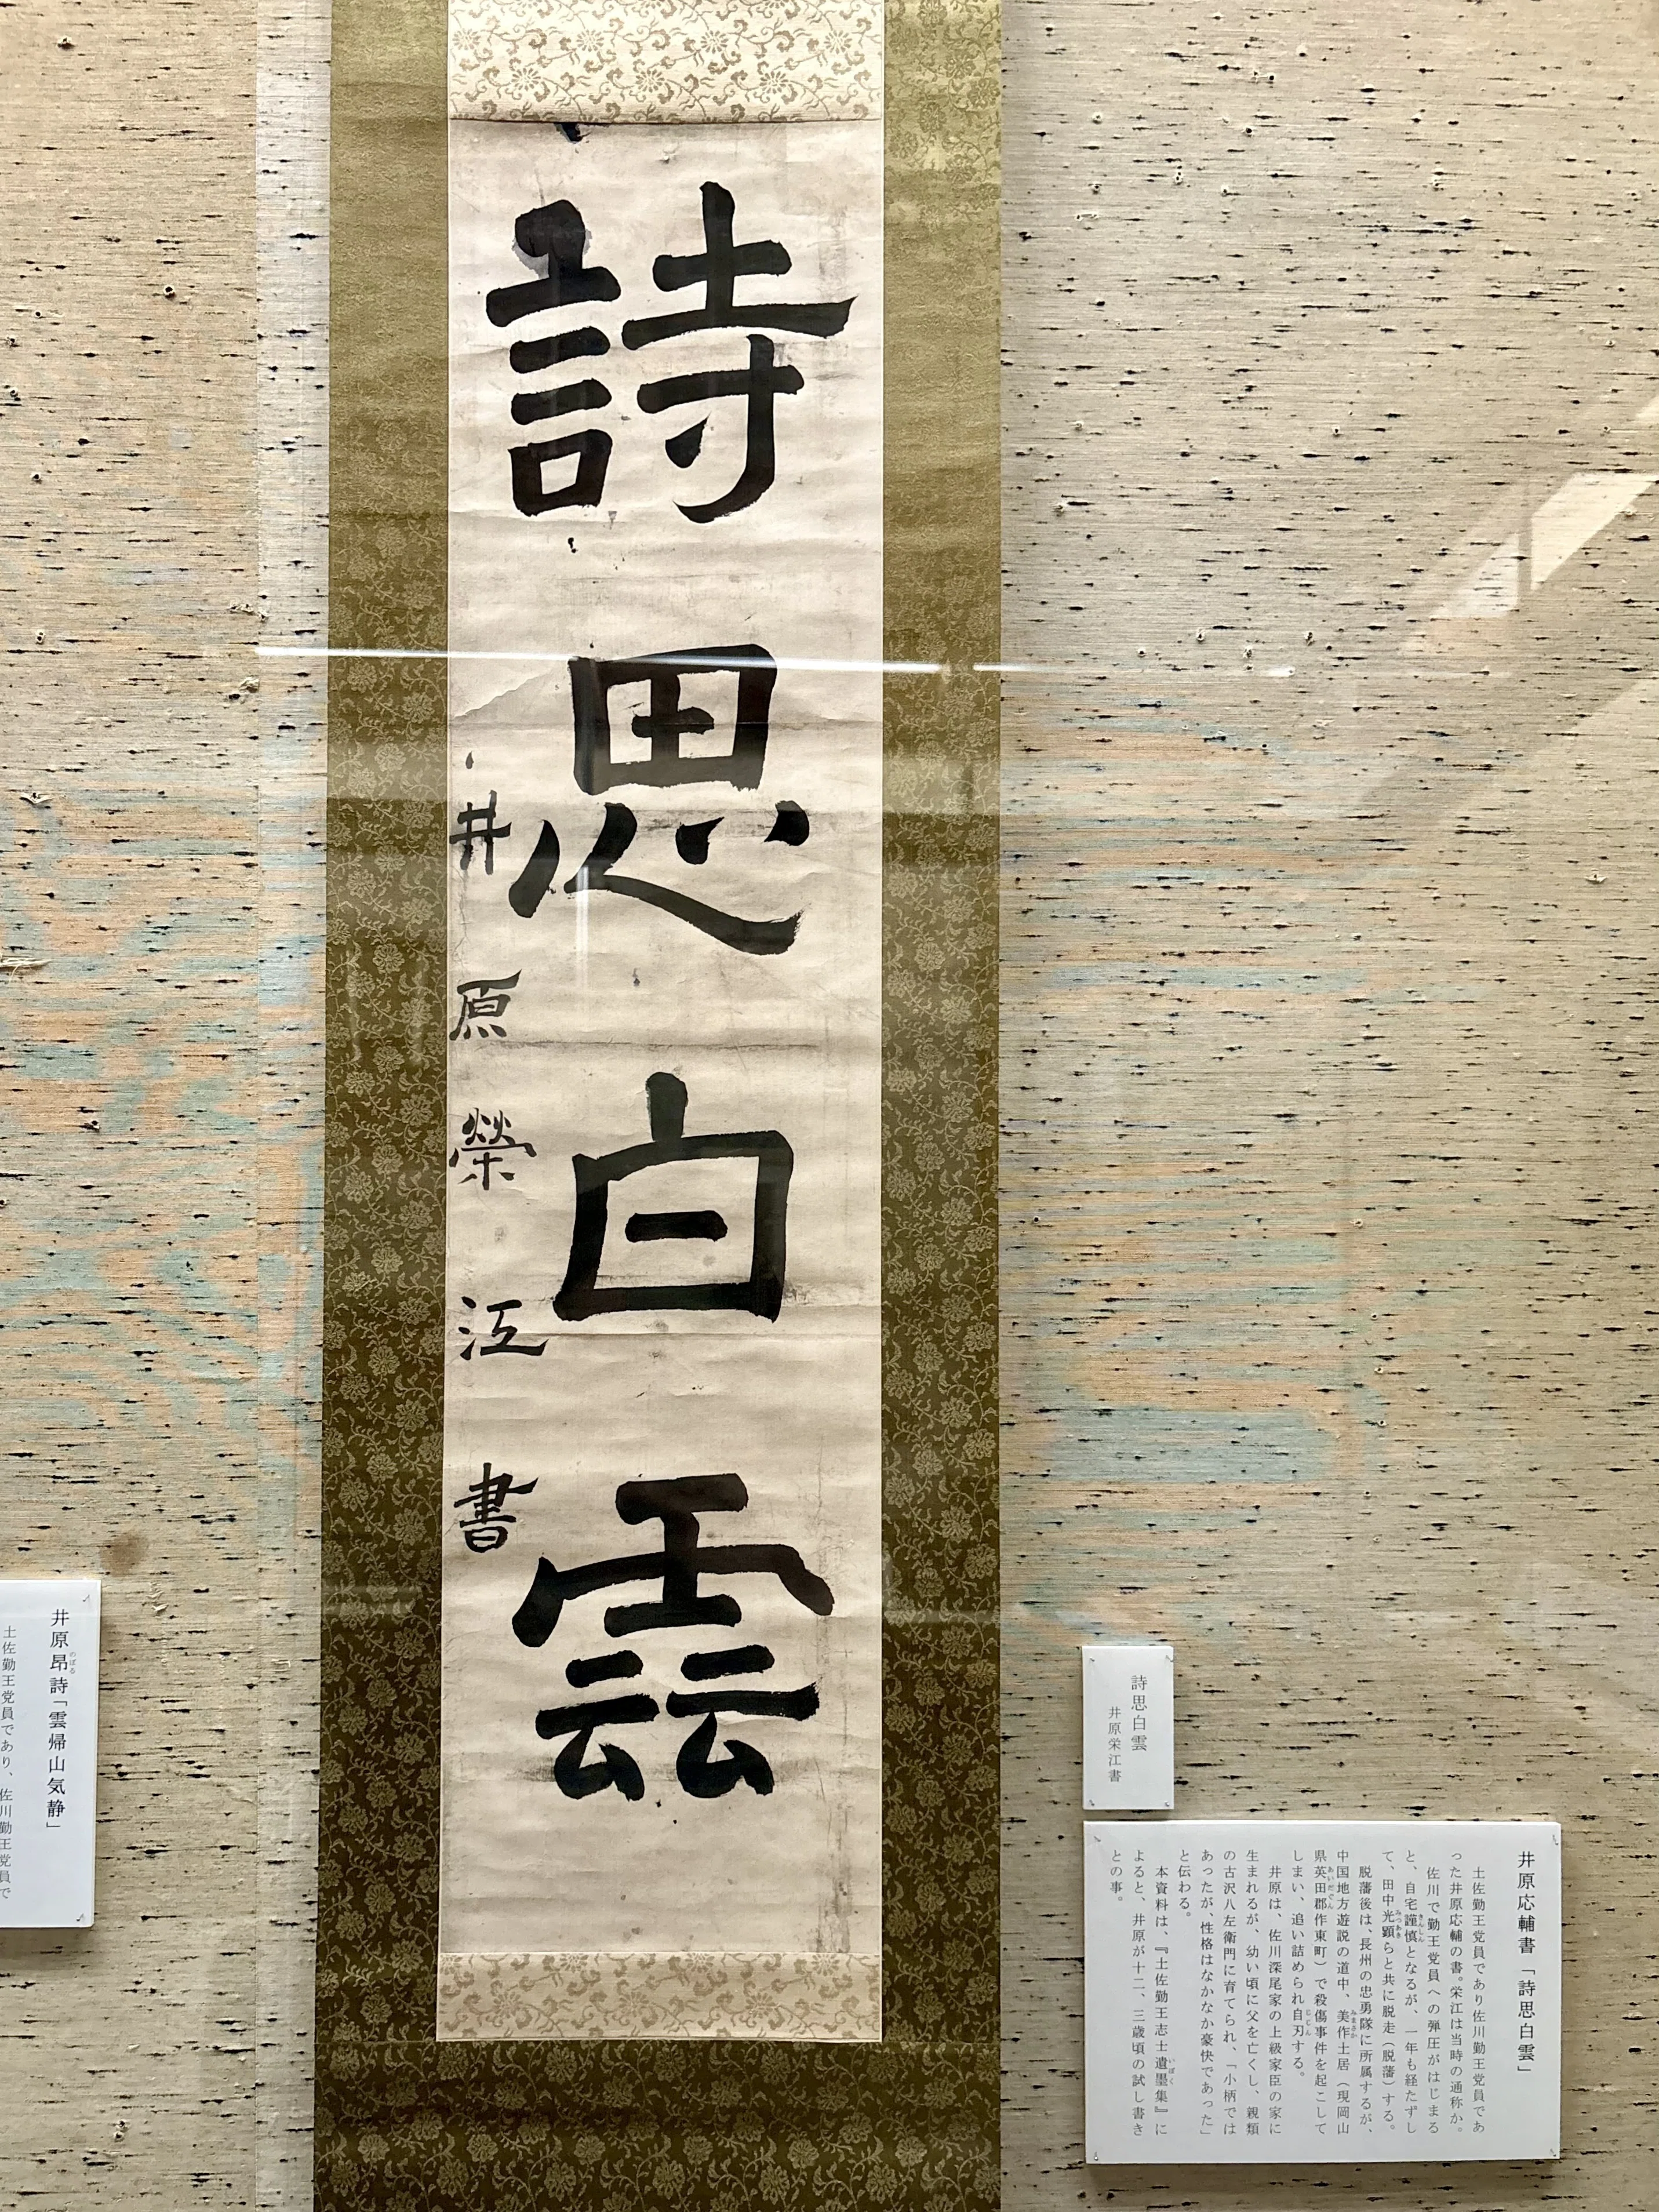 詩思白雲
井原榮江書
詩思白雲
井原栄江書
井原応輔書「詩思白雲」
土佐勤王党員であり佐川勤王党員であ
った井原応輔の書。栄江は当時の通称か。
佐川で勤王党員への弾圧がはじまる
と、自宅謹慎となるが、一年も経たずし
て、田中光顕らと共に脱走(脱藩)する。
脱藩後は、長州の忠勇隊に所属するが、
中国地方遊説の道中、美作土居(現岡山
県英田郡作東町)で殺傷事件を起こして
しまい、追い詰められ自刃する。
井原は、佐川深尾家の上級家臣の家に
生まれるが、幼い頃に父を亡くし、親類
の古沢八左衛門に育てられ、「小柄では
あったが、性格はなかなか豪快であった」
と伝わる。
本資料は、『土佐勤王志士遺墨集』に
よると、井原が十二、三歳頃の試し書き
との事。
井原昂詩「雲帰山気静」
土佐勤王党員であり、佐川勤王党員で